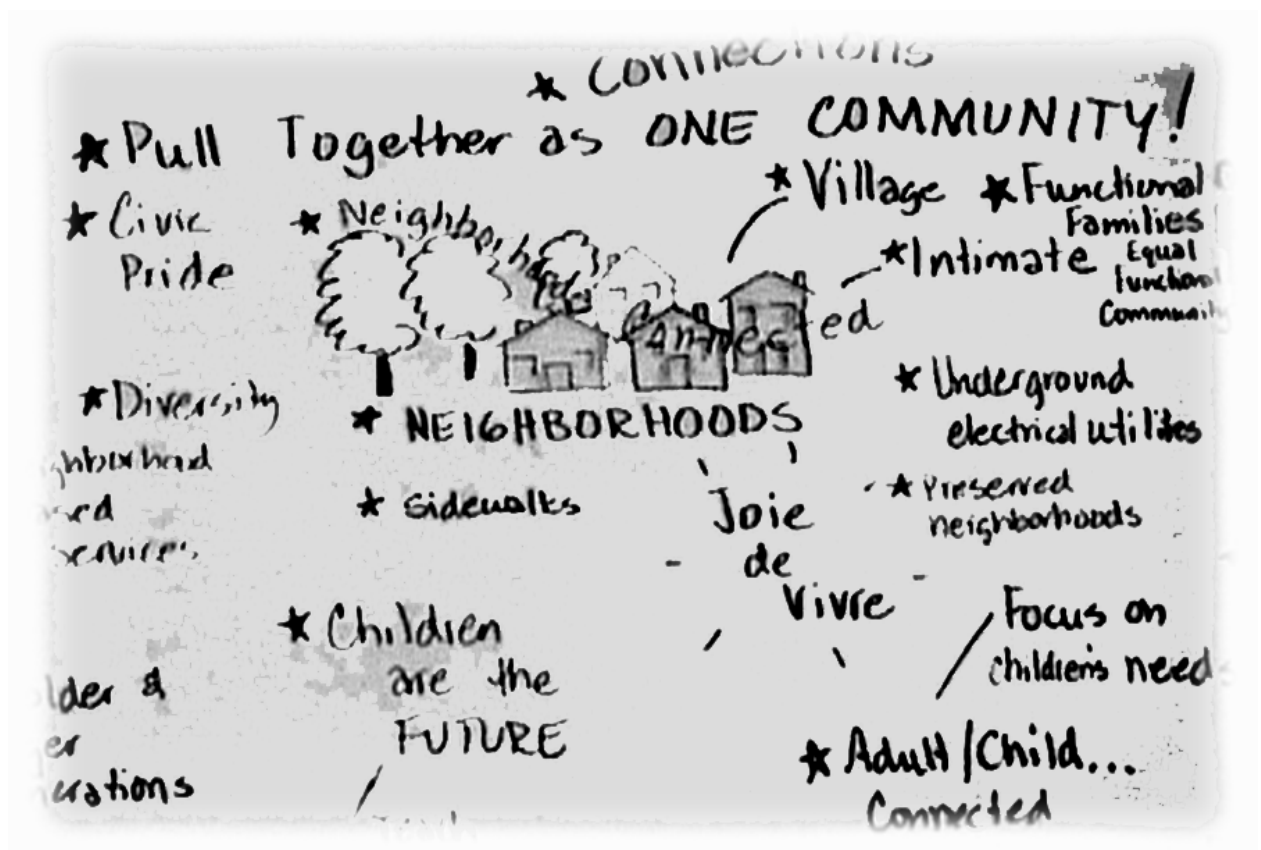 ★ Connections
★ Pull Together as ONE COMMUNITY!
★ Civic
Pride
★ Neighborhoods
Connected
★ Village
★ Functional
Families
★ Intimate
Equal
functional
Community
★ Diversity
★ NEIGHBORHOODS
★ Underground
electrical utilities
ghborhood
services
★ Sidewalks
Joie
de
Vivre
★ Preserved
neighborhoods
★ Children
are the
FUTURE
Focus on
children's need
lder &
er
erations
★ Adult/Child...
Connected